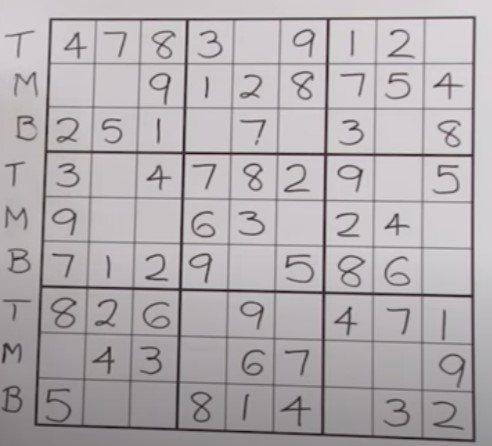 T 4 7 8 3 9 1 2
M 9 1 2 8 7 5 4
B 2 5 1 7 3 8
T 3 4 7 8 2 9 5
M 9 6 3 2 4
B 7 1 2 9 5 8 6
T 8 2 6 9 4 7 1
M 4 3 6 7 9
B 5 8 1 4 3 2